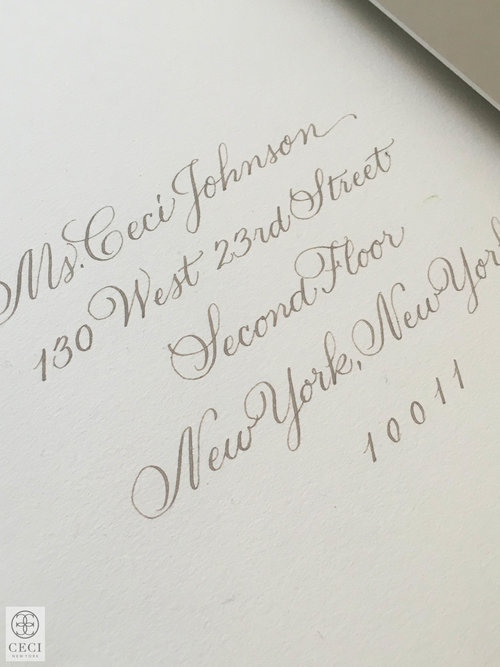 Ms. Ceci Johnson
130 West 23rd Street
Second Floor
New York, New York
10011
CECI
NEW YORK